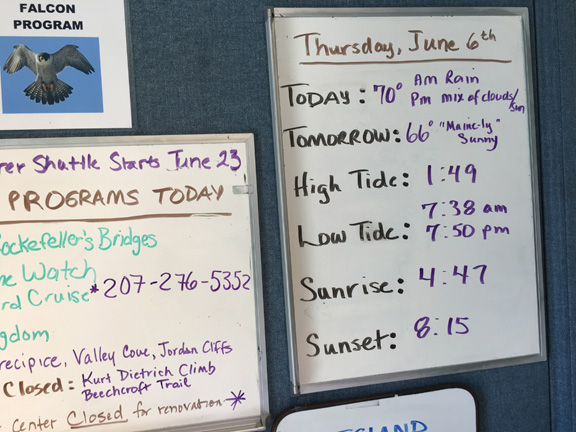 FALCON
PROGRAM
Shuttle Starts June 23
PROGRAMS TODAY
Rockefeller's Bridges
Watch
Cruise *207-276-5352
Precipice, Valley Cove, Jordan Cliffs
Closed: Kurt Dietrich Climb
Beechcroft Trail
Center Closed for renovation *
Thursday, June 6th
TODAY: 70° Am Rain
Pm mix of clouds/sun
TOMORROW: 66° "Maine-ly"
Sunny
High Tide: 1:49
7:38 am
Low Tide: 7:50 pm
Sunrise: 4:47
Sunset: 8:15
ISLAND